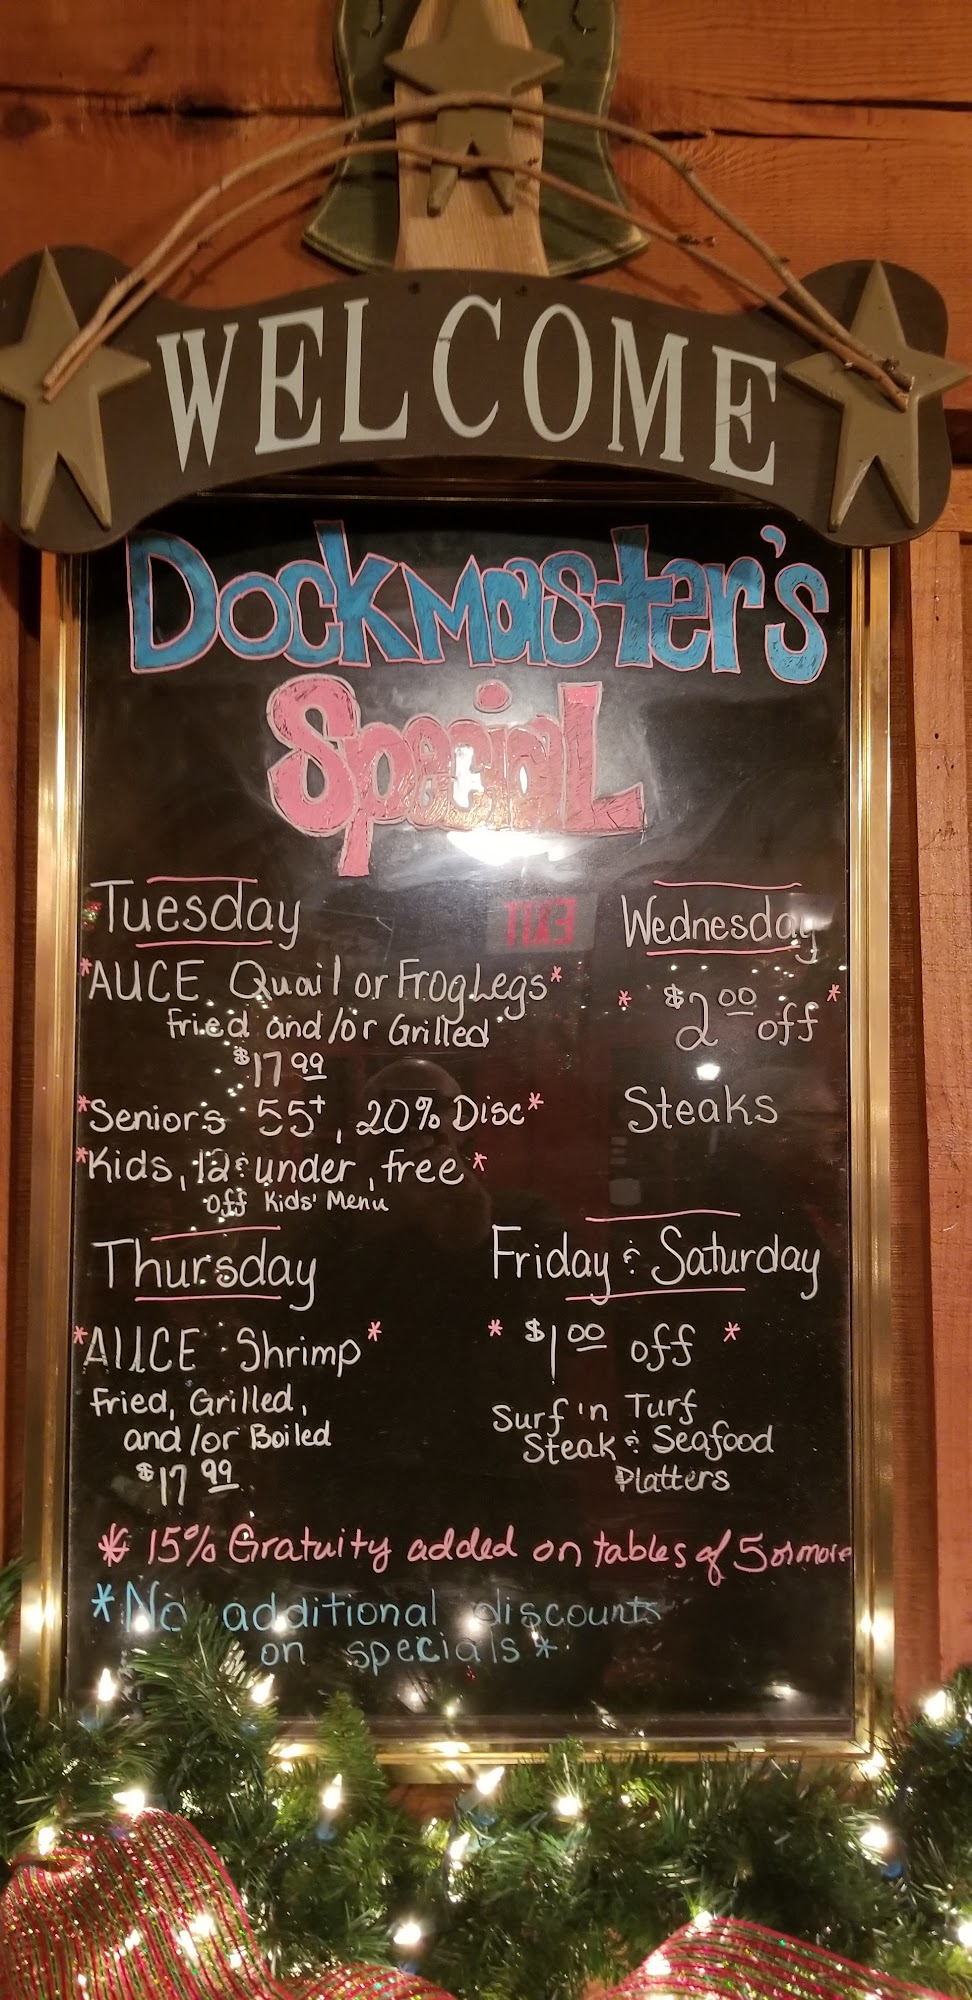 WELCOME
Dockmaster's
Special
Tuesday
*AUCE Quail or Frog Legs*
Fried and/or Grilled
$17.99
*Seniors 55+, 20% Disc*
*Kids, 12 & under, free*
off Kids' Menu
Wednesday
* $2.00 off *
Steaks
Thursday
*AUCE Shrimp*
Fried, Grilled,
and/or Boiled
$17.99
Friday & Saturday
* $1.00 off *
Surf 'n Turf
Steak & Seafood
Platters
* 15% Gratuity added on tables of 5 or more
*No additional discounts
on specials*
EXIT